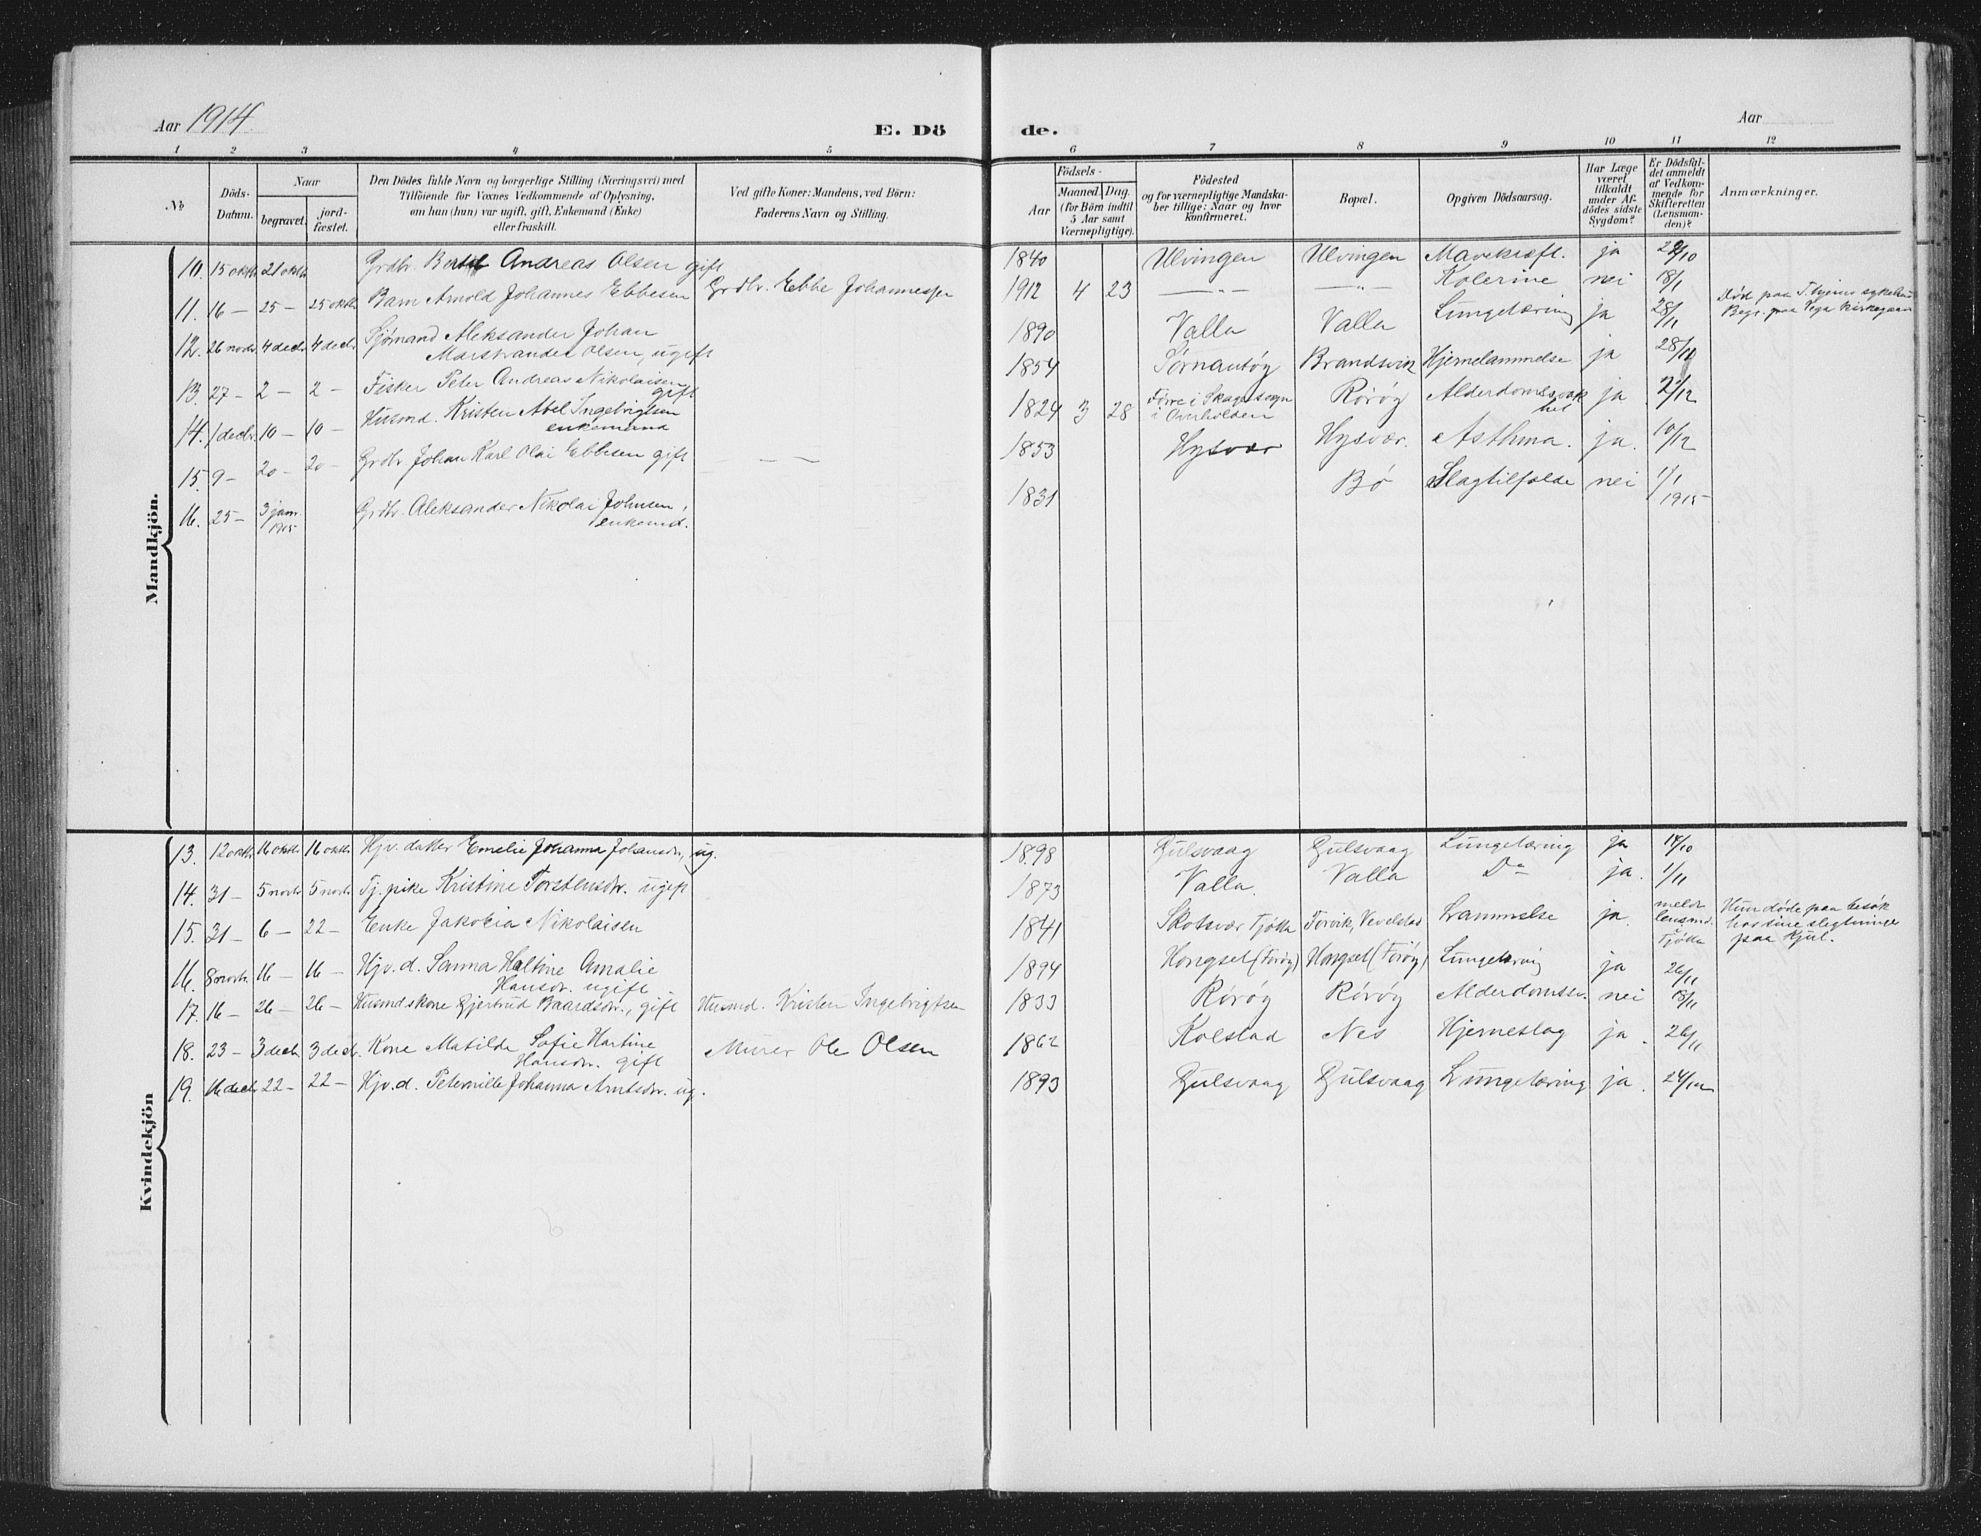 Aar 1914.
E. Dö
de.
Aar
1 2 3 4 5
6 7 8 9 10 11 12
№
Döds-
Datum.
Naar
begravet.
jord-
fæstet.
Den Dödes fulde Navn og borgerlige Stilling (Næringsvei) med
Tilföiende for Voxnes Vedkommende af Oplysning,
om han (hun) var ugift, gift, Enkemand (Enke)
eller fraskilt.
Ved gifte Koner: Mandens, ved Börn:
Faderens Navn og Stilling.
Födsels-
Aar
Maaned.
Dag.
(for Börn indtil
5 Aar samt
Værnepligtige).
Födested
og for værnepligtige Mandska-
ber tillige: Naar og hvor
konfirmeret.
Bopæl.
Opgiven Dödsaarsag.
Har Læge
været
tilkaldt
under Af-
dödes sidste
Sygdom?
Er Dödsfal-
det anmeldt
af Vedkom-
mende for
Skifteretten
(Lensman-
den)?
Anmærkninger.
Mandkjön.
10. 15 oktb. 21 oktb. Grdbr. Andreas Olsen gift 1840 Ulvingen Ulvingen Mavekræft. ja /10
11. 16 — 25 — 25 oktb. Barn Arnold Johannes Ebbesen Grdbr. Ebbe Johannessen 1912 4 23 — " — — " — Kolerine nei 18/1
12. 26 novb. 4 decb. 4 decb. Sjømand Aleksander Johan
Marstrander Olsen, ugift 1890 Valla Valla Lungetæring ja 28/11 Død paa sykehus
Begr. paa Vega kirkegaard
13. 27 — 2 — 2 — Fisker Peter Andreas Nikolaisen
gift 1854 Brandsvik Hjernelammelse ja
14. 1 decb. 10 — 10 — Husmd. Kristen Abel Ingebrigtsen
enkemand 1824 3 28 i Skage sogn
i Overhalden Rørøy Alderdomssvak
het ja 2/12
15. 9 — 20 — 20 — Grdbr Johan Karl Olai Ebbesen gift — — 1853 Hysvær Hysvær. Asthma. ja. 10/12
16. 25 — 3 jan
1915 Grdbr. Aleksander Nikolai Johnsen,
enkemd. 1831 Bø Slagtilfælde nei 1/1
1915
Kvindekjön
13. 12 oktb. 16 oktb. 16 oktb. Hjv. datter Emelie Johanna Johansdr., ug. 1898 Gulsvaag Gulsvaag Lungetæring ja 14/10
14. 31 — 5 novb. 5 novb. Tj. pike Kristine Torstensdr. ugift 1873 Valla. Valla Do ja. 1/11
15. 31 — 6 — 22 — Enke Jakobia Nikolaisen 1841 Skotsvær Tjøtta Forvik, Vevelstad Lammelse ja. meldt
lensmd.
i Tjøtta Hun døde paa besøk
hos sine slegtninge
paa Hjul.
16. 8 novb. 16 — 16 — Hjv. d. Sanna Amalie
Hansdr. ugift 1894 Hongset Hongset Lungetæring ja 26/11
17. 16 — 26 — 26 — Husmdskone Gjertrud Baardsdr., gift Husmd. Kristen Ingebrigtsen 1833 Rørøy Rørøy Alderdomssv. nei 18/11
18. 23 — 3 decb. 3 decb. Kone Matilde Sofie Hartine
Hansdr. gift Murer Ole Olsen 1862 Kolstad Nes Hjerneslag ja. 26/11
19. 16 decb. 22 — 22 — Hjv. d. Peternille Johanna Arntsdr. ug. 1893 Gulsvaag Gulsvaag Lungetæring ja. 24/12